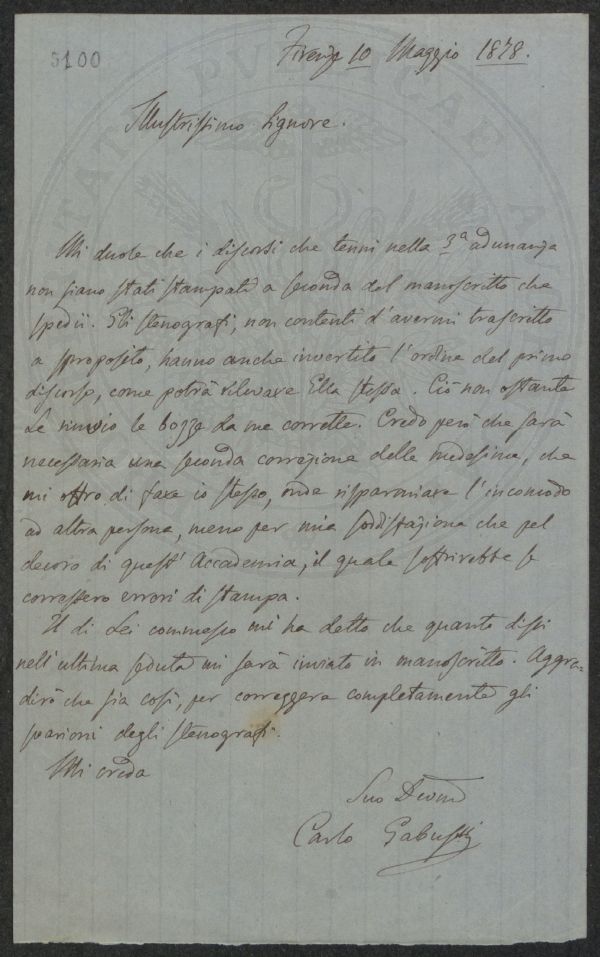 5100
Firenze 10 Maggio 1878.
Illustrissimo Signore.
Mi duole che i discorsi che tenni nella 3ª adunanza
non siano stati stampati a seconda del manoscritto che
spedii. Gli stenografi, non contenti d'avermi trascritto
a sproposito, hanno anche invertito l'ordine del primo
discorso, come potrà rilevare Ella stessa. Ciò non ostante
Le rinvio le bozze da me corrette. Credo però che sarà
necessaria una seconda correzione delle medesime, che
mi offro di fare io stesso, onde risparmiare l'incomodo
ad altra persona, meno per mia soddisfazione che pel
decoro di quest'Accademia, il quale soffrirebbe se
corressero errori di stampa.
Il di Lei commesso mi ha detto che quanto dissi
nell'ultima seduta mi sarà inviato in manoscritto. Aggra-
dirò che sia così, per correggere completamente gli
svarioni degli stenografi.
Mi creda
Suo Devmo
Carlo